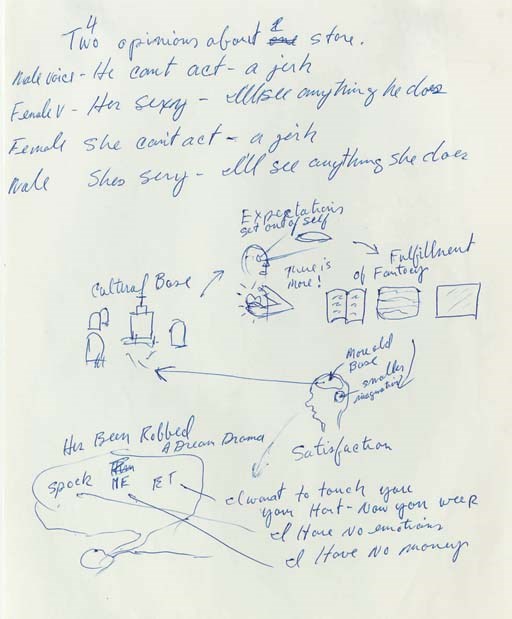 4
Two opinions about 1 store.
Male voice - He can't act - a jerk
Female V - Her sexy - I'll see anything he does
Female She can't act - a jerk
Male Shes sexy - I'll see anything she does
Expectations
get out of self
There is
More!
Fulfillment
of Fantasy
Cultural Base
More old
Base
smaller
imagination
Satisfaction
Her Been Robbed
A Dream Drama
Spock ME ET
I want to touch you
your Hart - Now you weep
I Have No emotions
I Have No money